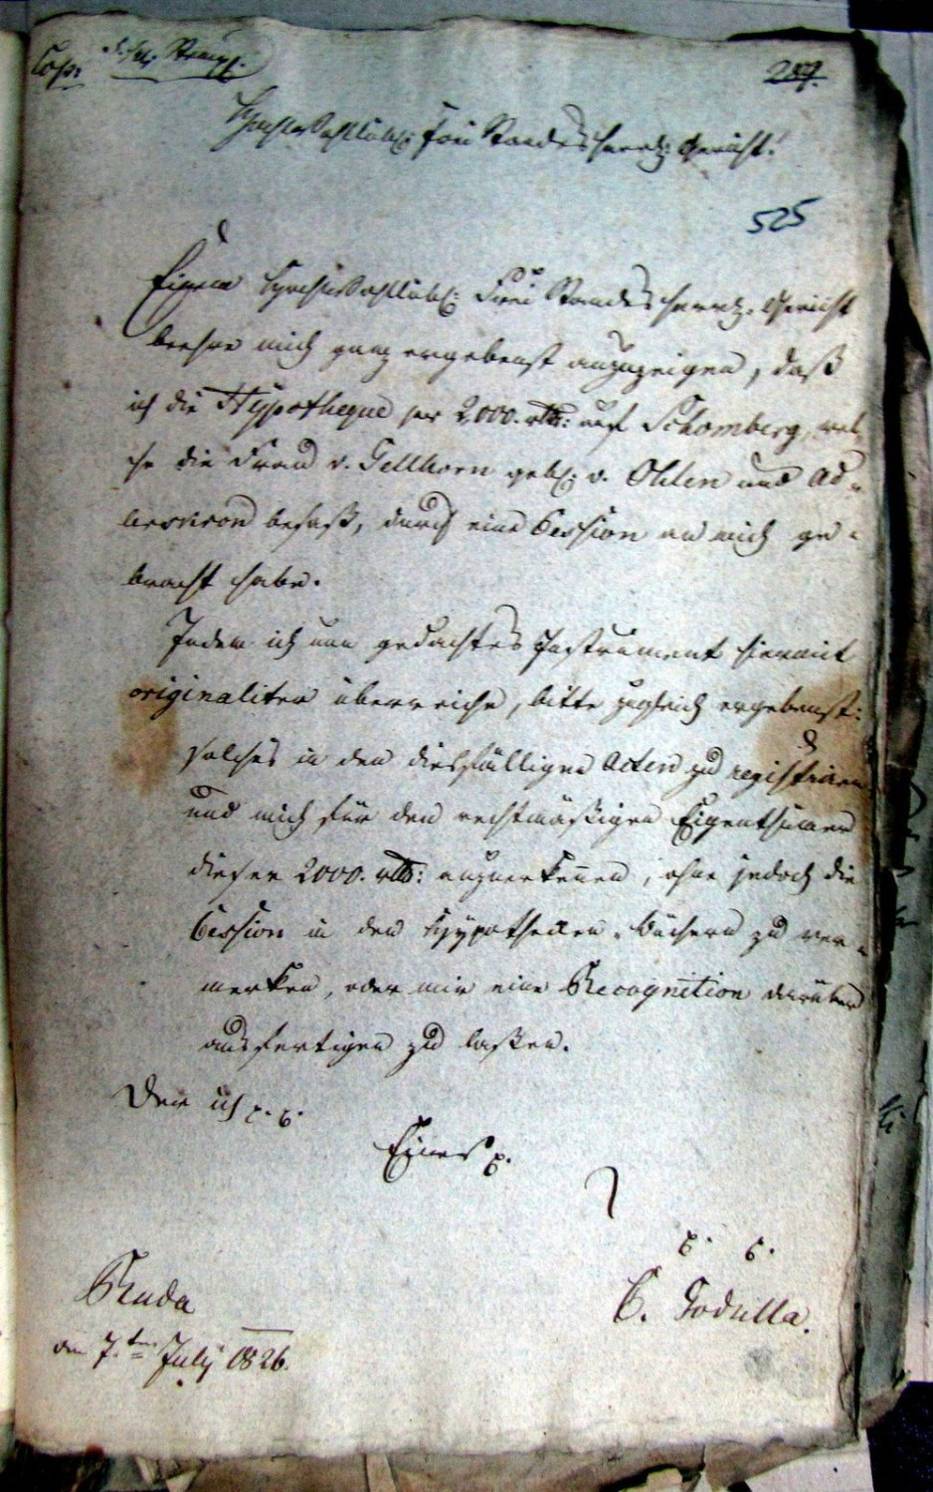 Cop:
207.
Hochwohllöbl: Frei Standesherrl: Gericht!
525
Einem Hochwohllöbl: Frei Standesherrl. Gericht
beehre mich ganz ergebenst anzuzeigen, daß
ich die Hypotheque per 2,000. rtlr: auf Schomberg, wel
che die Frau v. Gellhorn gebh: v. Ohlen und Ad-
lerscron besaß, durch eine Cession an mich ge-
bracht habe.
Indem ich nun gedachtes Instrument hiermit
originaliter überreiche, bitte zugleich ergebenst:
solches in den diesfälligen Acten zu registriren
und mich für den rechtmäßigen Eigenthümer
dieser 2000. rtlr: anzuerkennen, ohne jedoch die
Cession in den Hypotheken-Büchern zu ver-
merken, oder mir eine Recognition darüber
ausfertigen zu laßen.
Der ich p. p.
Eines p.
C. Godulla.
Ruda
den 7.ten July 1826.